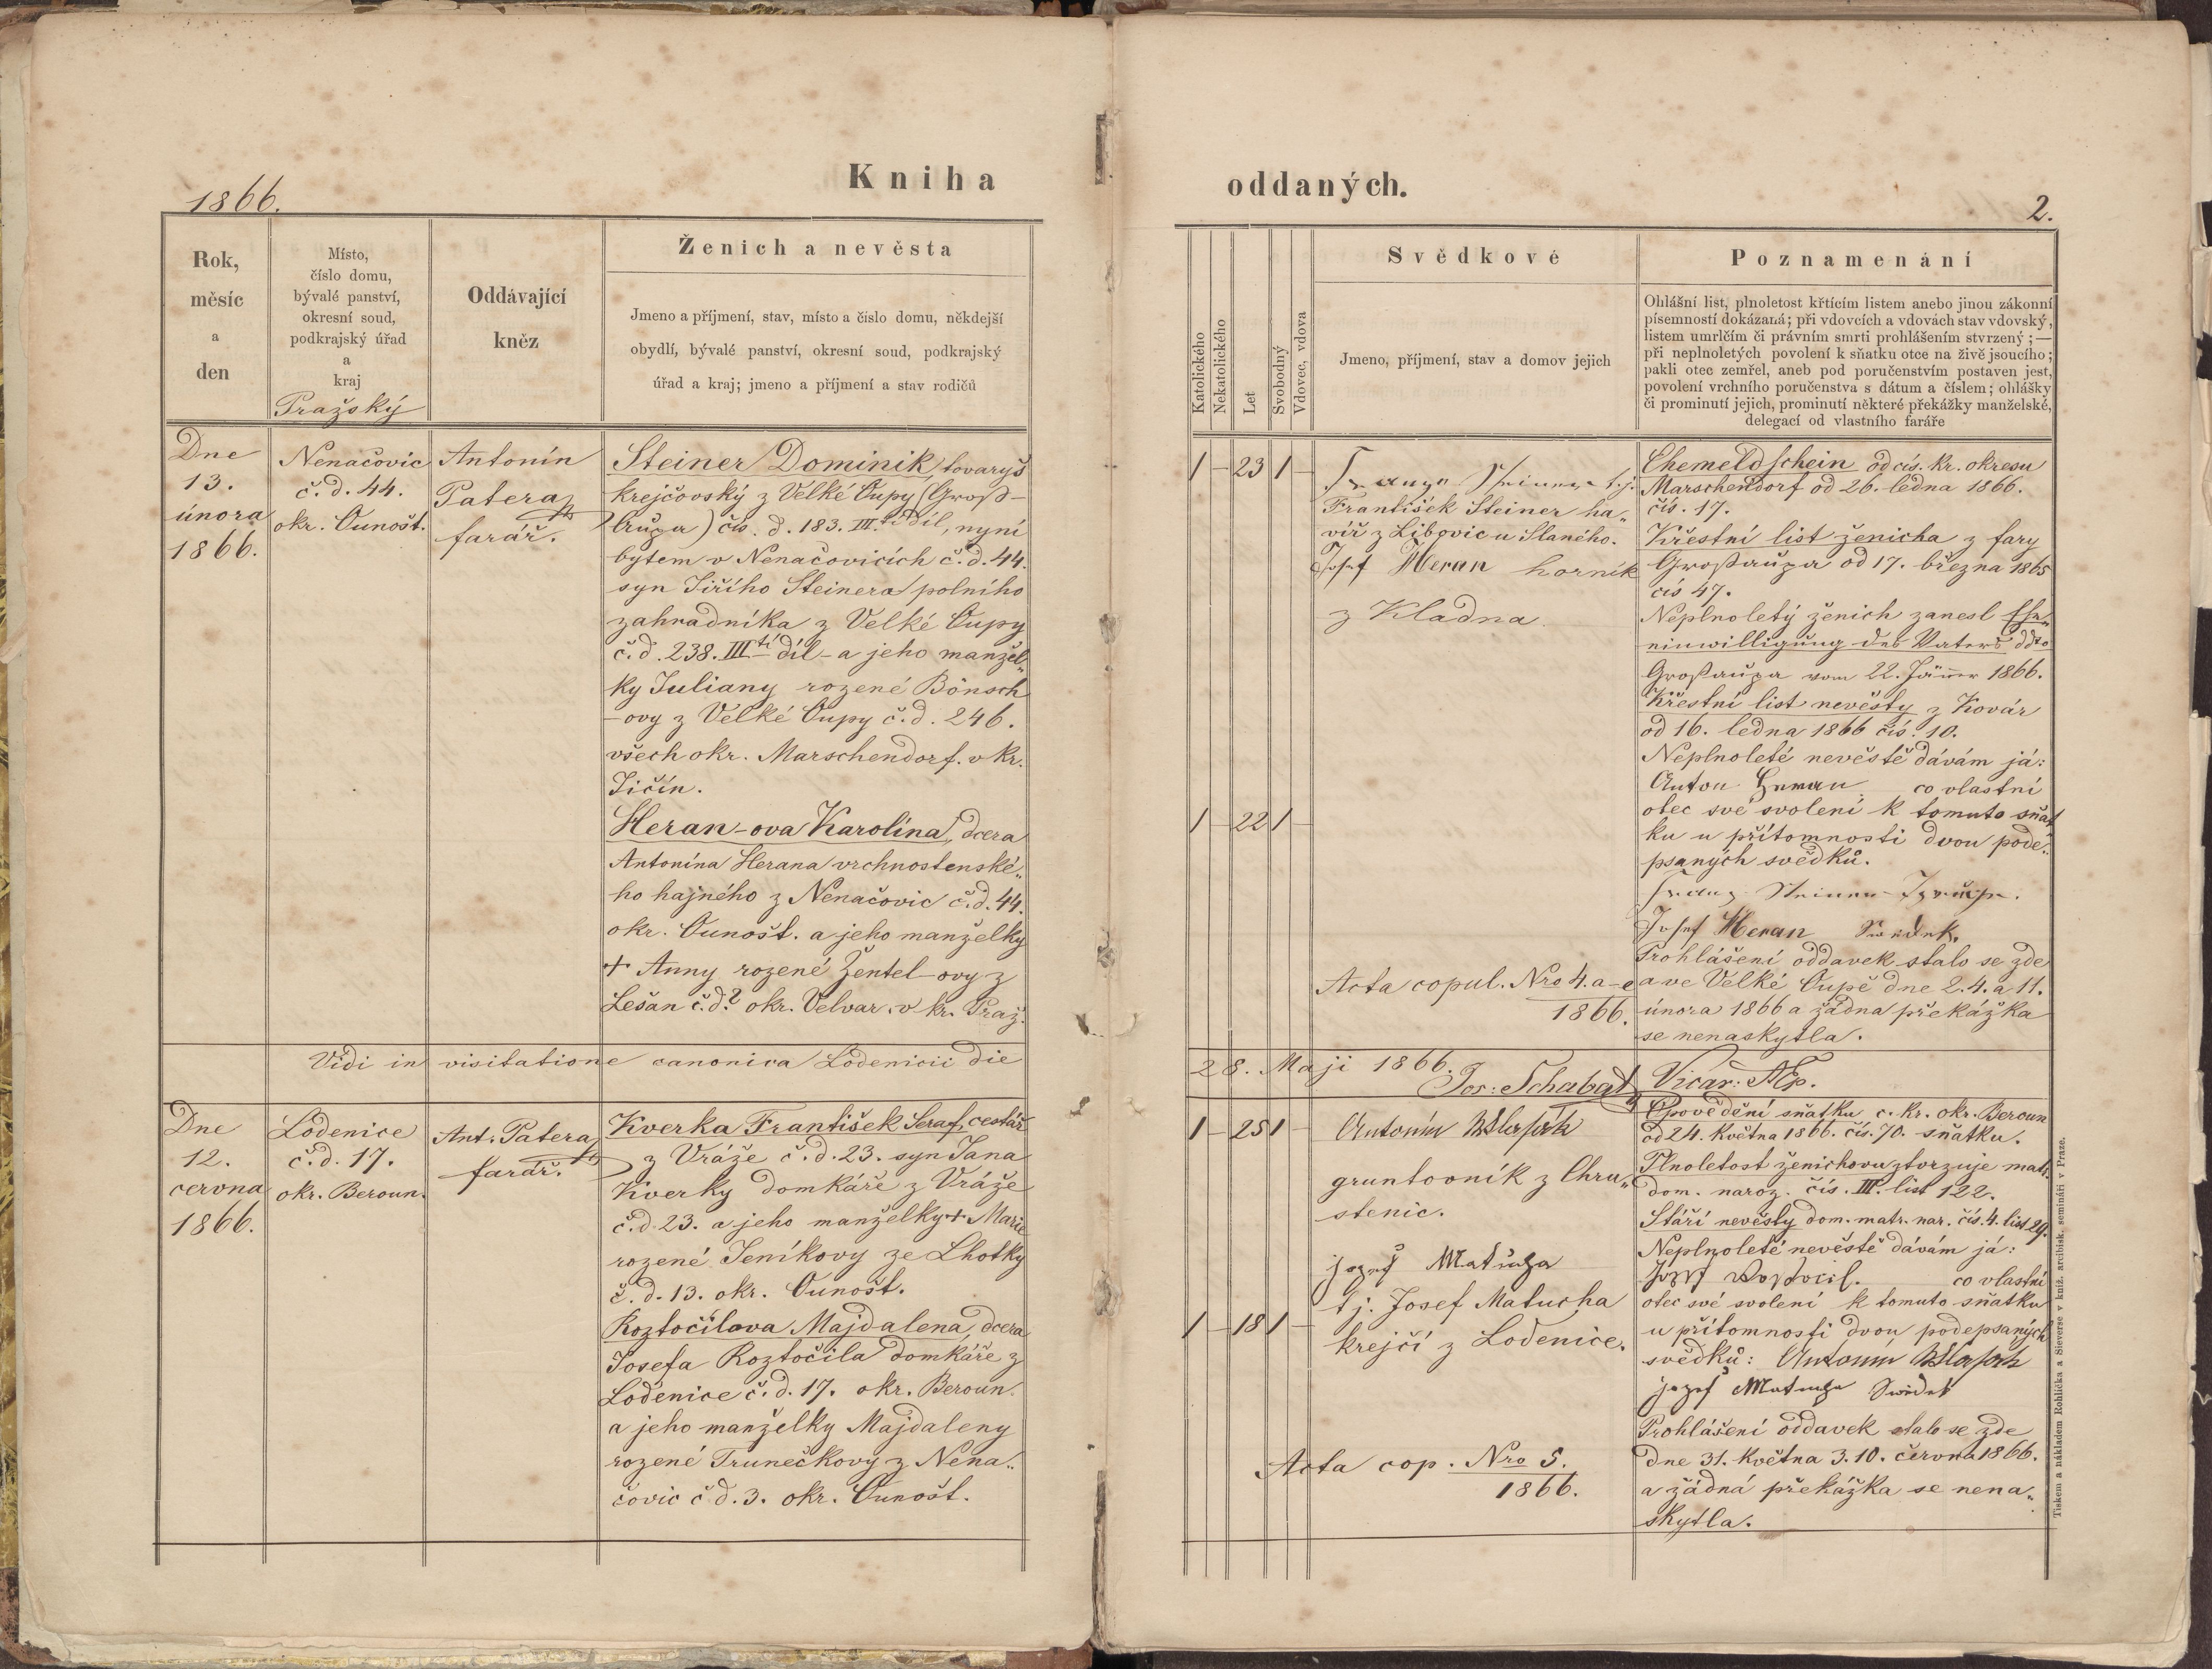 1866.
Kniha
Rok,
měsíc
a
den
Místo,
číslo domu,
bývalé panství,
okresní soud,
podkrajský úřad
a
kraj
Pražský
Oddávající
kněz
Ženich a nevěsta
Jmeno a příjmení, stav, místo a číslo domu, někdejší
obydlí, bývalé panství, okresní soud, podkrajský
úřad a kraj; jmeno a příjmení a stav rodičů
Dne
13.
února
1866.
Nenačovic
č. d. 44.
okr. Ounošt.
Antonín
Patera
farář.
Steiner Dominik, tovaryš
krejčovský z Velké Oupy (Groß-
aupa) čís. d. 183. III.tí díl, nyní
bytem v Nenačovicích č. d. 44.
syn Jiřího Steinera polního
zahradníka z Velké Oupy
č. d. 238. IIItí díl - a jeho manžel„
ky Juliany rozené Bönsch
-ovy z Velké Oupy č. d. 246.
všech okr. Marschendorf. v kr.
Jičín.
Heran-ova Karolina, dcera
Antonína Herana vrchnostenské„
ho hajného z Nenačovic č. d. 44.
okr. Ounošt. a jeho manželky
+ Anny rozené Žentel-ovy z
Lešan č. d.? okr. Velvar. v kr. Praž.
Vidi in visitatione canonica Lodenicii die
Dne
12.
června
1866.
Lodenice
č. d. 17.
okr. Beroun.
Ant. Patera
farář.
Kverka František Seraf, cestář
z Vráže č. d. 23. syn Jana
Kverky domkáře z Vráže
č. d. 23. a jeho manželky + Marie
rozené Jeníkovy ze Lhotky
č. d. 13. okr. Ounošt.
Roztočilova Majdalena, dcera
Josefa Roztočila domkáře z
Loděnice č. d. 17. okr. Beroun.
a jeho manželky Majdaleny
rozené Trunečkovy z Nena„
čovic č. d. 3. okr. Ounošt.
oddaných.
2.
Katolického
Nekatolického
Let
Svobodný
Vdovec, vdova
Svědkové
Jmeno, příjmení, stav a domov jejich
Poznamenání
Ohlášní list, plnoletost křtícím listem anebo jinou zákonní
písemností dokázaná; při vdovcích a vdovách stav vdovský,
listem umrlčím či právním smrti prohlášením stvrzený; —
při neplnoletých povolení k sňatku otce na živě jsoucího;
pakli otec zemřel, aneb pod poručenstvím postaven jest,
povolení vrchního poručenstva s dátum a číslem; ohlášky
či prominutí jejich, prominutí některé překážky manželské,
delegací od vlastního faráře
1 - 23 1 -
Steiner t. j.
František Steiner ha„
víř z Libovic u Slaného.
Josef Heran horník
z Kladna.
1 - 22 1 -
Acta copul. Nro 4. a-e
1866.
Ehemeldschein od cís. kr. okresu
Marschendorf od 26. ledna 1866.
čís. 17.
Křestní list ženicha z fary
Großaupa od 17. března 1865
čís 47.
Neplnoletý ženich zanesl Ehe„
einwilligung des Vaters ddto
Großaupa vom 22. Jänner 1866.
Křestní list nevěsty z Kovár
od 16. ledna 1866 čís. 10.
Neplnoleté nevěstě dávám já:
Anton Heran co vlastní
otec své svolení k tomuto sňat„
ku u přítomnosti dvou pode„
psaných svědků.
Josef Heran
Prohlášení oddavek stalo se zde
a ve Velké Oupě dne 2. 4. a 11.
února 1866 a žádná překážka
se nenaskytla.
28. Maji 1866.
Jos: Schabat Vicar:
1 - 25 1 -
Antonín
gruntovník z Chru„
stenic.
jozef Matucha
t j. Josef Matucha
krejčí z Lodenice.
1 - 18 1 -
Acta cop. Nro 5.
1866.
Opovědění sňatku c. kr. okr. Beroun
od 24. května 1866. čís. 70. sňatku.
Plnoletost ženichovu ztvrzuje matr.
dom. naroz. čís. III. list 122.
Stáří nevěsty dom. matr. nar. čís. 4. list 29.
Neplnoleté nevěstě dávám já:
Josef co vlastní
otec své svolení k tomuto sňatku
u přítomnosti dvou podepsaných
svědků: Antonín
jozef Matucha
Prohlášení oddavek stalo se zde
dne 31. května 3. 10. června 1866.
a žádná překážka se nena„
skytla.
Tiskem a nákladem Rohlíčka a Sieverse v kníž. arcibisk. semináři v Praze.